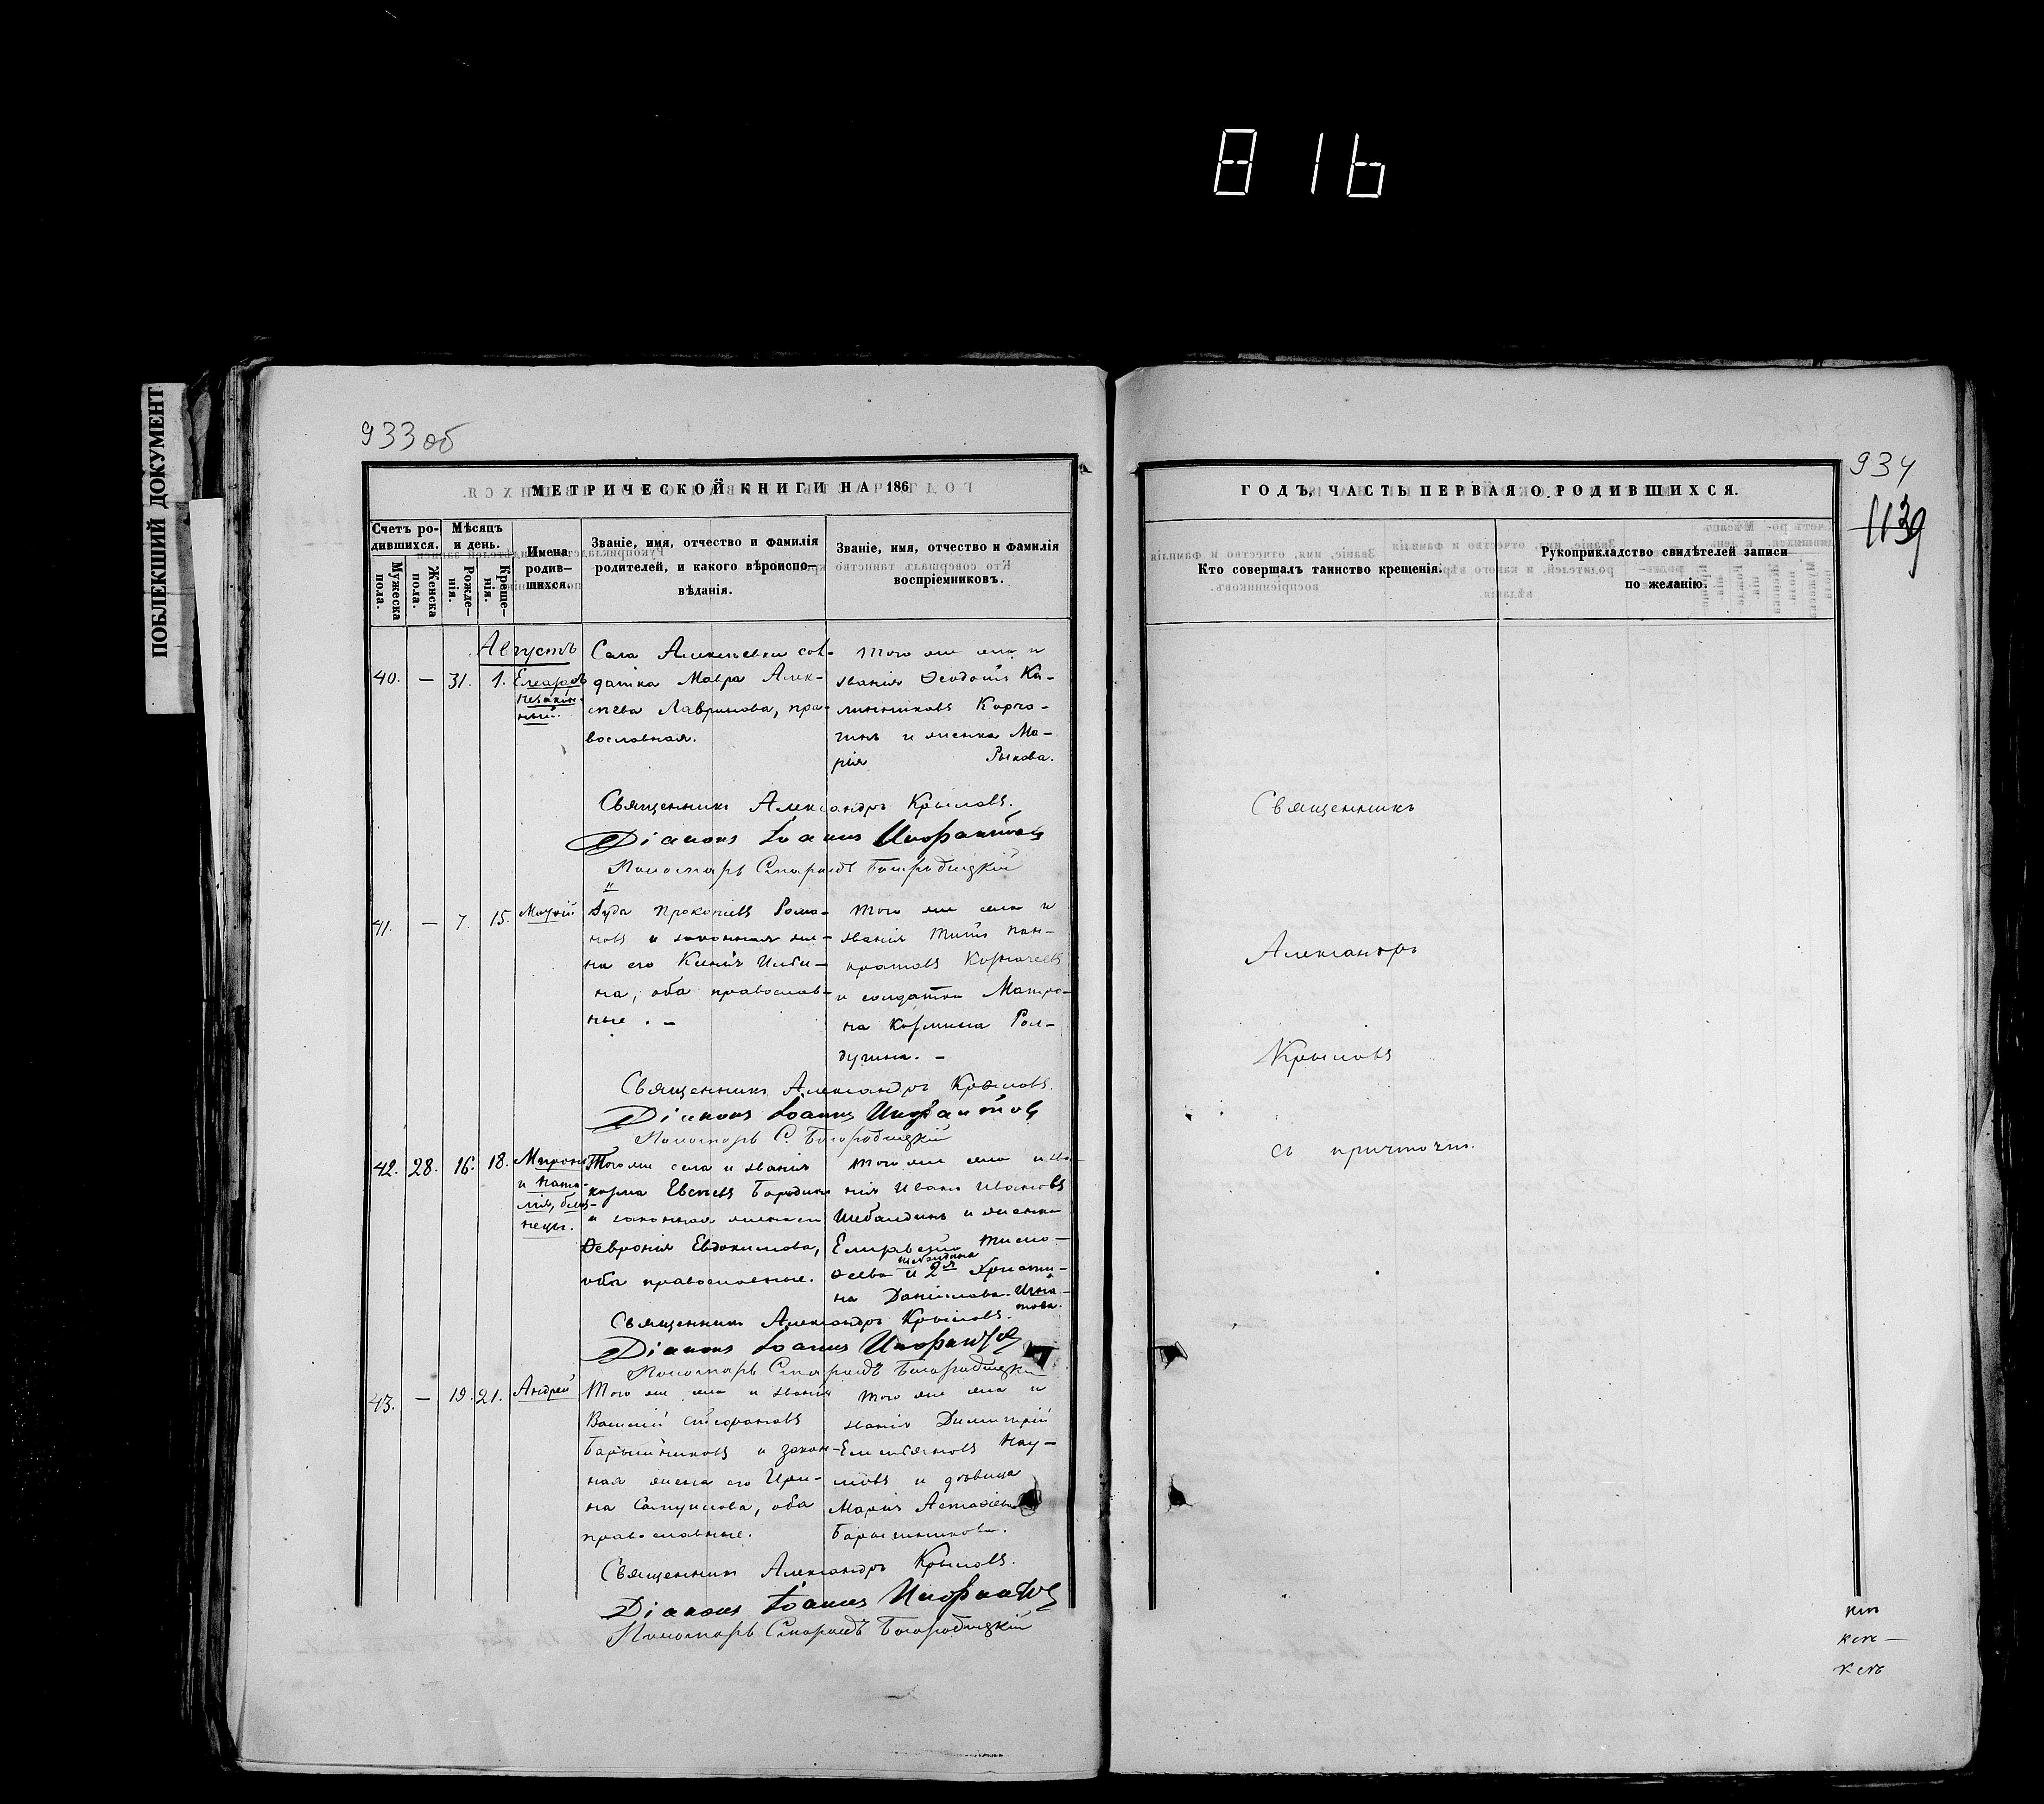 816
ПОБЛЕКШИЙ ДОКУМЕНТ
933 об
МЕТРИЧЕСКОЙ КНИГИ НА 186
Счетъ ро-
дившихся.
Мѣсяцъ
и день.
Имена
родив-
шихся.
Званіе, имя, отчество и фамилія
родителей, и какого вѣроиспо-
вѣданія.
Званіе, имя, отчество и фамилія
воспріемниковъ.
Мужеска
пола.
Женска
пола.
Рожде-
нія.
Креще-
нія.
Августъ
40. — 31. 1.
незакон-
ный.
Села Алексѣевки сол-
датка Мавра Алек-
сѣева Лавринова, пра-
вославная.
того же села и
званія Ѳеодотъ Ка-
линниковъ Корча-
гинъ и женка Ма-
рія Рыкова.
Священникъ Александръ Крыловъ.
Діаконъ Іоаннъ
Пономарь Богородицкій
41. — 7. 15.
Іуда Прокопіевъ Рома-
новъ и законная же-
на его Ксенія Ильи-
на, оба православ-
ные. —
того же села и
званія Титъ Пан-
кратовъ
и солдатка Матро-
на Козмина Рол-
дугина. —
Священникъ Александръ Крыловъ.
Діаконъ Іоаннъ
Пономарь С. Богородицкій
42. 28. 16. 18. Миронъ
и Ната-
лія, близ-
нецы.
Того же села и званія
Козма Евсѣевъ Бородинъ
и законная жена его
Ѳевронія Евдокимова,
оба православные.
того же села и зва-
нія Иванъ Ивановъ
Шебалдинъ и женка
Елизавета Тимо-
Шебалдина
ѳеева и 2я Христи-
на Данилова Игна-
това.
Священникъ Александръ Крыловъ.
Діаконъ Іоаннъ
Пономарь Богородицкій
43. — 19. 21. Андрей
Того же села и званія
Василій Стефановъ
Барышниковъ и закон-
ная жена его Ири-
на Самуилова, оба
православные.
того же села и
званія Димитрій
Емельяновъ Нау-
мовъ и дѣвица
Марія Астафіева
Барышникова.
Священникъ Александръ Крыловъ.
Діаконъ Іоаннъ
Пономарь Богородицкій
934
1139
ГОДЪ, ЧАСТЬ ПЕРВАЯ О РОДИВШИХСЯ.
Кто совершалъ таинство крещенія.
Рукоприкладство свидѣтелей записи
по желанію.
Священникъ
Александръ
Крыловъ
съ причтомъ.